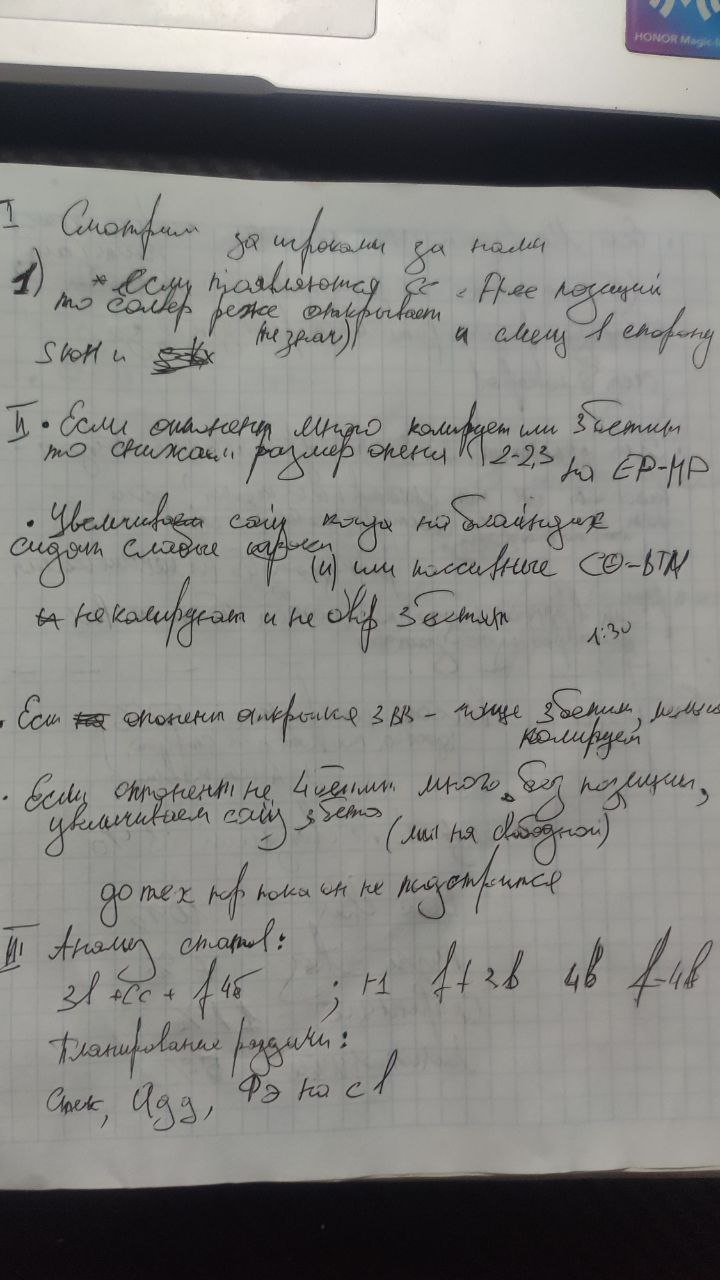 HONOR Magic
I Смотрим за игроками за нами
1) * если появляются CC с
позиций
то солвер реже открывает
и смещ в сторону
II • Если оппонент много колирует или 3бетит
то снижаем размер опена 2-2,3 на EP-MP
• Увеличиваем сайз когда на блайндах
сидят слабые игроки (и) или пассивные CO-BTN
не колируют и не 3бетят
1:30
• Если опонент открылся 3BB - чаще 3бетим, меньше
колируем
• Если оппонент не 4бетит много, без позиции,
увеличиваем сайз 3бета
до тех пор пока он не подстроится
III Анализ статов:
+ CC + f 4б ; 4b f-4b
Планирование раздачи:
Стек, на